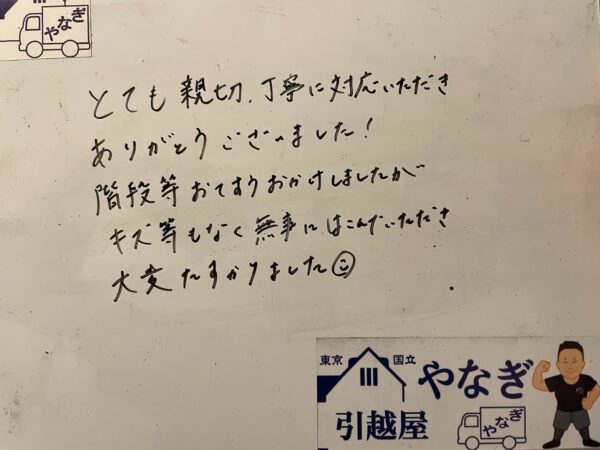 やなぎ
とても親切、丁寧に対応いただき
ありがとうございました！
階段等おてすうおかけしましたが
キズ等もなく無事にはこんでいただき
大変たすかりました
東京 国立 やなぎ
引越屋 やなぎ